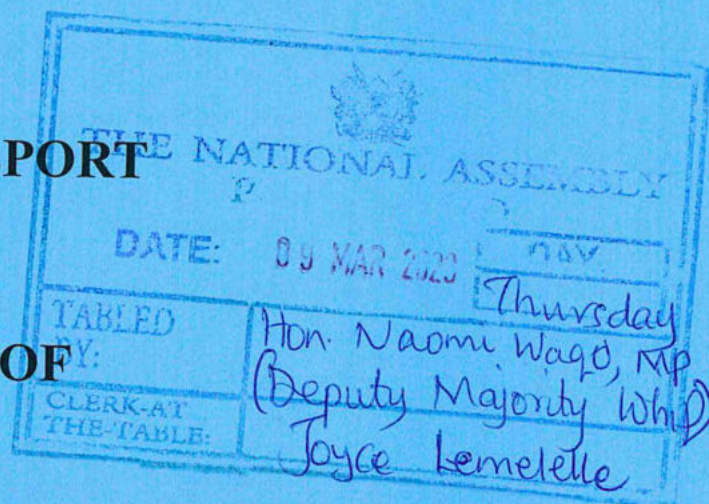 PORT
THE NATIONAL ASSEMBLY
DATE: 09 MAR 2023 DAY.
Thursday
TABLED BY: Hon. Naomi Waqo, MP
OF
(Deputy Majority Whip)
CLERK-AT THE-TABLE: Joyce Lemelelle